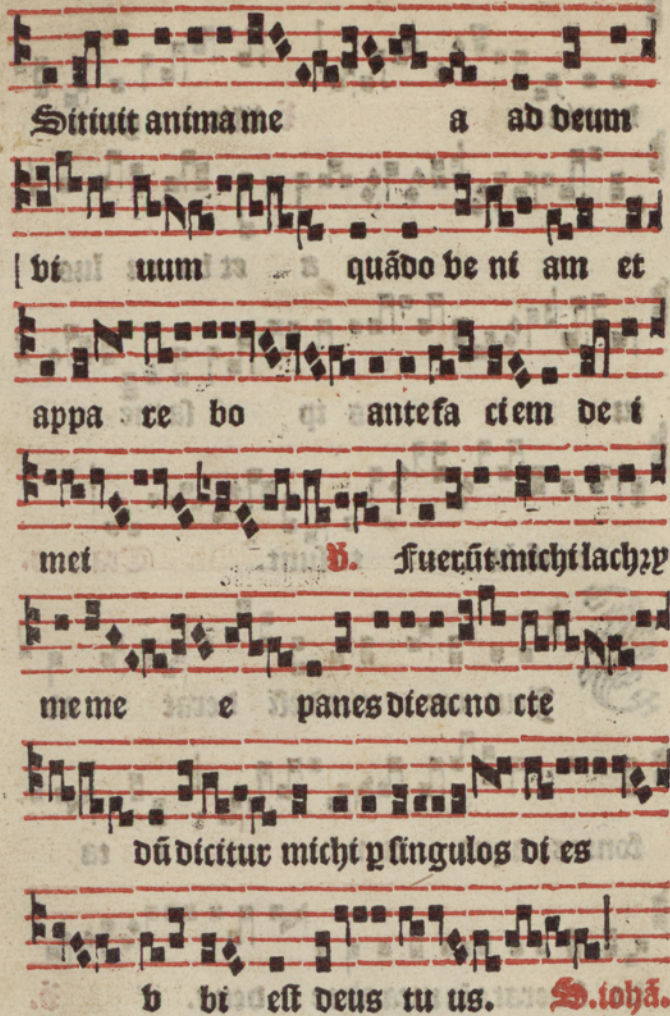 Sitiuit anima me a ad deum
vi uum quãdo ve ni am et
appa re bo ante fa ciem de i
mei V̄. Fuerũt michi lachry
me me e panes die ac no cte
dũ dicitur michi ꝑ singulos di es
v bi est deus tu us. S. iohã.